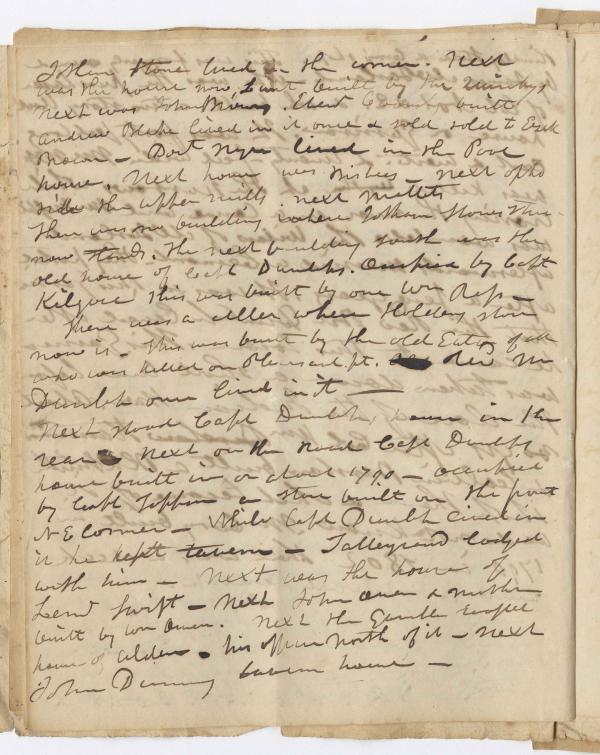 Jotham Stone lived in the corner. Next
was the house now built by the
next was John Browns. Eben built
Andrew Blake lived in it once & sold sold to Eck
Bacon – Doct Nye lived in the Pool
house. Next house was – next opho
side the upper mills. next
There was no building where Jotham Stones Store
now stands. The next building south was the
old house of Capt Dunlaps. Occupied by Capt
Kilgore This was built by one Wm Ross –
There was a celler where Holdens store
now is – This was built by the old Eaton
who was killed on Pleasant pt. Rev Mr
Dunlap once lived in it —
Next stood Capt Dunlap, house in the
rear Next on the road Capt Dunlaps
house built in or about 1790 – occupied
by Capt Toppan a store built on the front
N E Corner – While Capt Dunlap lived in
it he kept tavern – Talleyrand lodged
with him – Next was the house of
Leml Swift – Next John Owen & mother
built by Wm Owen. Next the
house of Alden – his office North of it – Next
John Dunning tavern house –